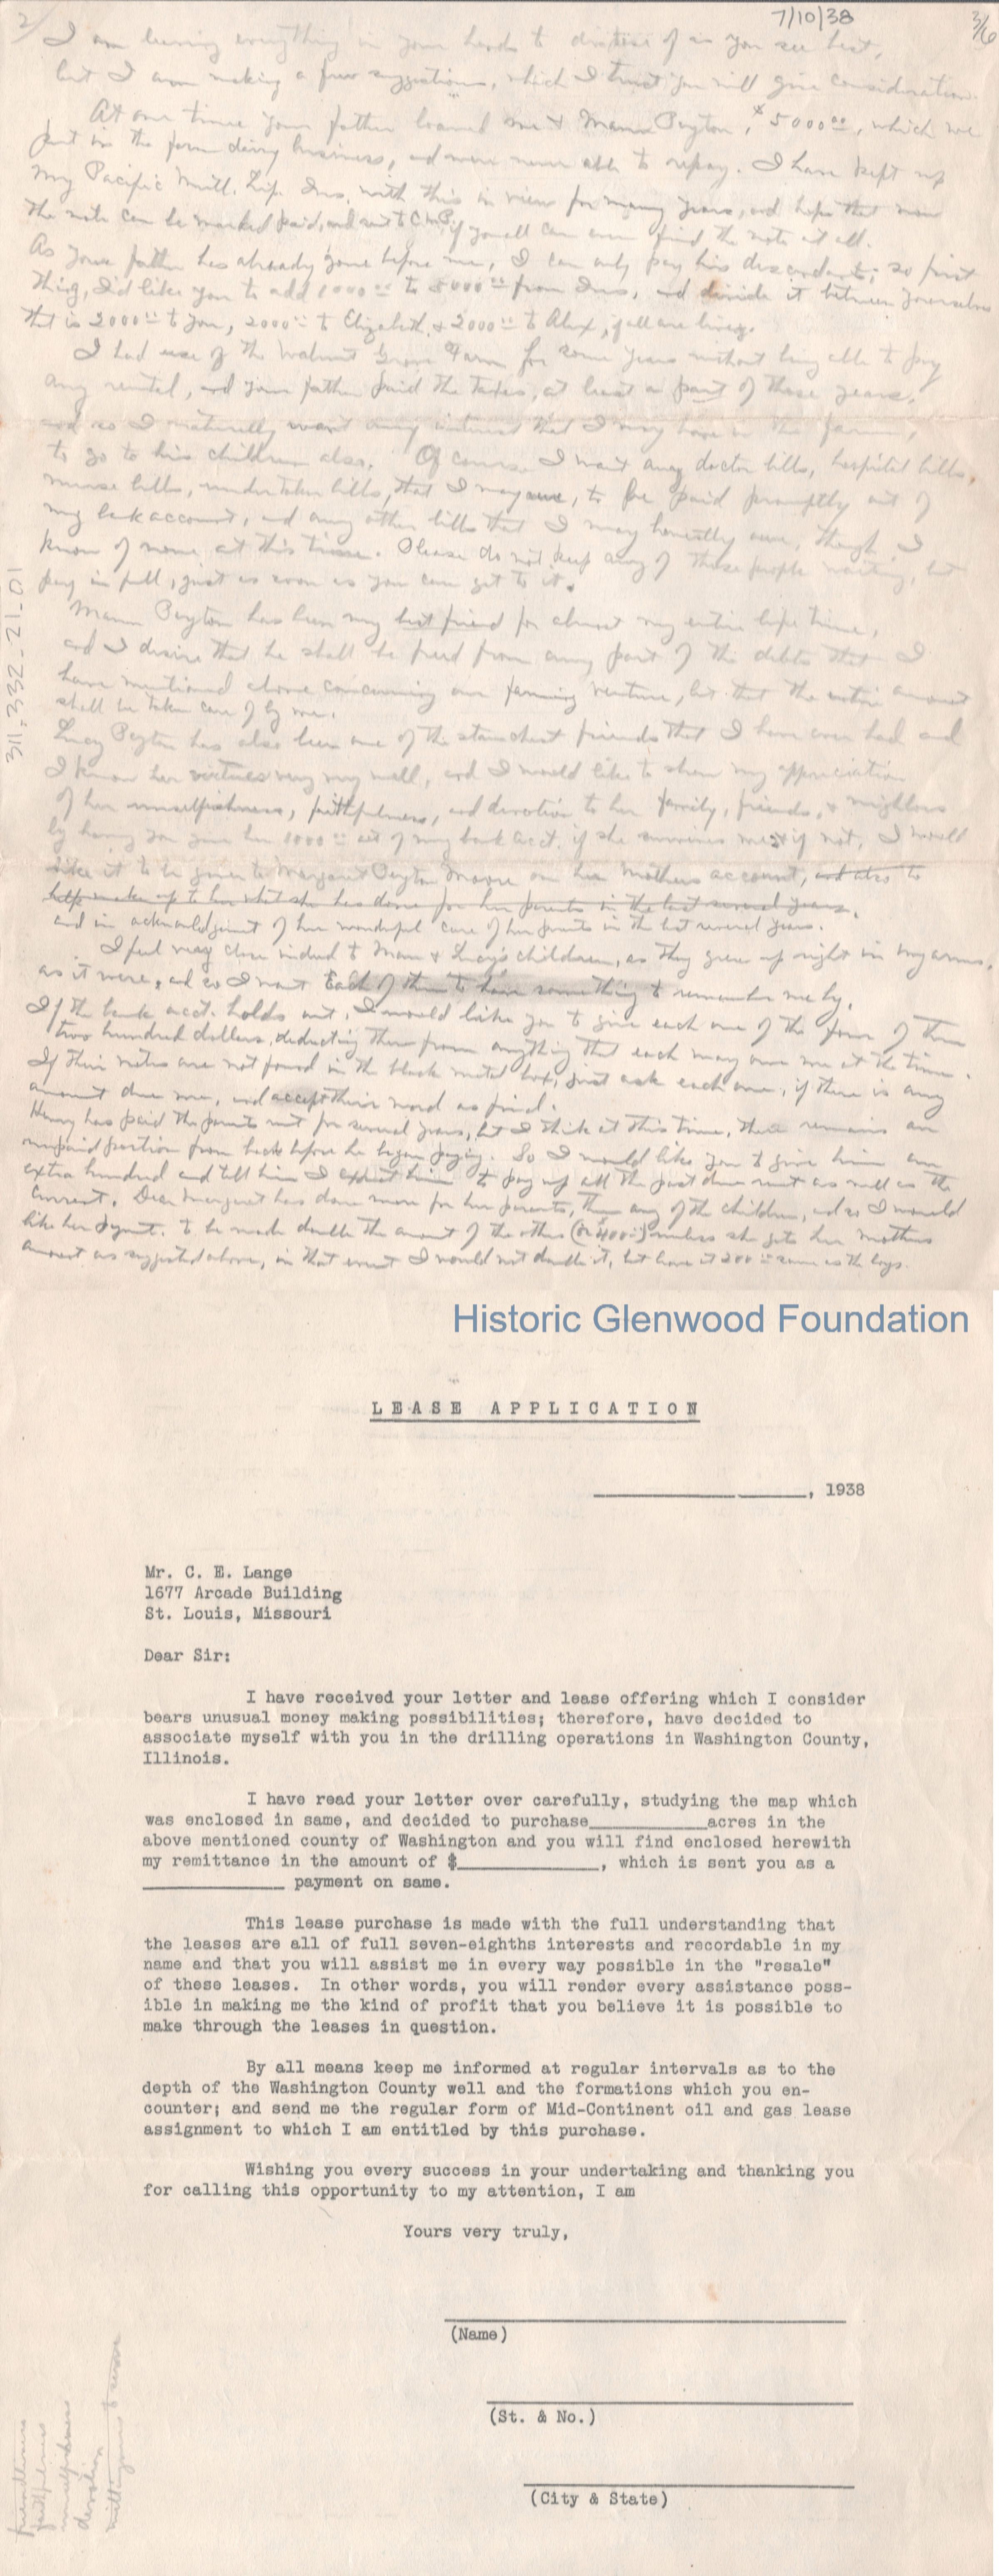 2/
7/10/38
3/6
I am leaving everything in your hands to dispose of as you see best,
but I am making a few suggestions, which I trust you will give consideration.
At one time your father loaned me & Mann Peyton, $5000.00, which we
put in the farm dairy business, and were never able to repay. I have kept up
my Pacific Mutl. Life Ins. with this in view for many years, and hope that now
the note can be marked paid, and sent to C.M.P. if you all can even find the note at all.
As your father has already gone before me, I can only pay his descendants; so first
thing, I'd like you to add 1000.00 to 5000.00 from Ins, and divide it between yourselves
that is 2000.00 to you, 2000.00 to Elizabeth, & 2000.00 to Alex, if all are living.
I had use of the Walnut Grove Farm for some years without being able to pay
any rental, and your father paid the taxes, at least a part of those years,
and so I naturally want any interest that I may have in the farm,
to go to his children also. Of course I want any doctor bills, hospital bills,
nurse bills, undertaker bills, that I may owe, to be paid promptly out of
my bank account, and any other bills that I may honestly owe, though I
know of none, at this time. Please do not keep any of these people waiting, but
pay in full, just as soon as you can get to it.
Mann Peyton has been my best friend for almost my entire life time,
and I desire that he shall be freed from any part of the debts that I
have mentioned above concerning our farming venture, but that the entire amount
shall be taken care of by me.
Lucy Peyton has also been one of the stanchest friends that I have ever had and
I know her virtues very very well, and I would like to show my appreciation
of her unselfishness, faithfulness, and devotion to her family, friends, & neighbors
by having you give her 1000.00 out of my bank acct. if she survives me & if not, I would
like it to be given to Margaret Peyton Moore on her Mothers account, and also to
help make up to her what she has done for her parents in the last several years.
and in acknowledgment of her wonderful care of her parents in the last several years.
I feel very close indeed to Mann & Lucy's children, as they grew up right in my arms,
as it were, and so I want each of them to have something to remember me by.
If the bank acct. holds out, I would like you to give each one of the four of them
two hundred dollars, deducting there from anything that each may owe me at the time.
If their notes are not found in the black metal box, just ask each one, if there is any
amount due me, and accept their word as final.
Henry has paid the parents rent for several years, but I think at this time, there remains an
unpaid portion from back before he began paying. So I would like you to give him an
extra hundred and tell him I expect him to pay up all the past due rent as well as the
current. Dear Margaret has done more for her parents, than any of the children, and so I would
like her payment to be made double the amount of the others (or 400.00) unless she gets her mothers
amount as suggested above, in that event I would not double it, but have it 200.00 same as the boys.
311.332-21.01
Historic Glenwood Foundation
LEASE APPLICATION
, 1938
Mr. C. E. Lange
1677 Arcade Building
St. Louis, Missouri
Dear Sir:
I have received your letter and lease offering which I consider
bears unusual money making possibilities; therefore, have decided to
associate myself with you in the drilling operations in Washington County,
Illinois.
I have read your letter over carefully, studying the map which
was enclosed in same, and decided to purchase__________acres in the
above mentioned county of Washington and you will find enclosed herewith
my remittance in the amount of $____________, which is sent you as a
____________ payment on same.
This lease purchase is made with the full understanding that
the leases are all of full seven-eighths interests and recordable in my
name and that you will assist me in every way possible in the "resale"
of these leases. In other words, you will render every assistance poss-
ible in making me the kind of profit that you believe it is possible to
make through the leases in question.
By all means keep me informed at regular intervals as to the
depth of the Washington County well and the formations which you en-
counter; and send me the regular form of Mid-Continent oil and gas lease
assignment to which I am entitled by this purchase.
Wishing you every success in your undertaking and thanking you
for calling this opportunity to my attention, I am
Yours very truly,
(Name)
(St. & No.)
(City & State)
friendliness
faithfulness
unselfishness
devotion
willingness to serve